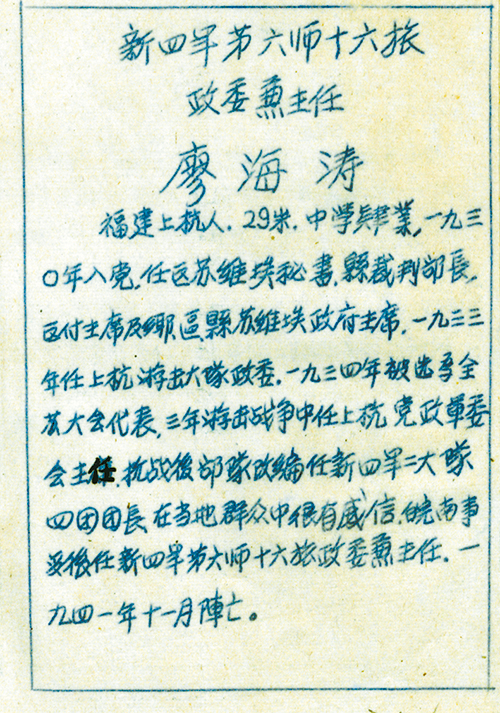 新四军第六师十六旅
政委兼主任
廖海涛
福建上杭人．29岁．中学肄業，一九三
〇年入党，任区苏維埃秘書．縣裁判部長，
区付主席及鄉．區縣苏維埃政府主席．一九三三
年任上杭游击大隊政委．一九三四年被选為全
苏大会代表，三年游击战争中任上杭党政軍委
会主任 抗战後部隊改编任新四军二大隊
四团团長．在当地群众中很有威信．皖南事
变後任新四军第六师十六旅政委兼主任．一
九四一年十一月陣亡。